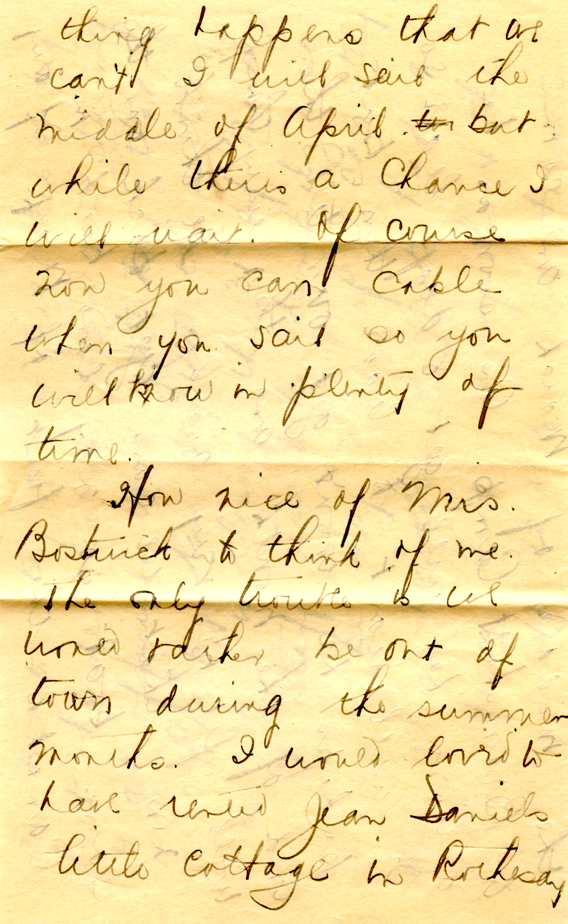 thing happens that we
can't I will sail the
middle of April to but
while theris a Chance I
will wait. Of course
now you can cable
when you sail so you
will know in plenty of
time.
How nice of Mrs.
Bostwick to think of me.
The only trouble is we
would rather be out of
town during the summer
months. I would loved to
have rented Jean Daniels
little cottage in Rothesay